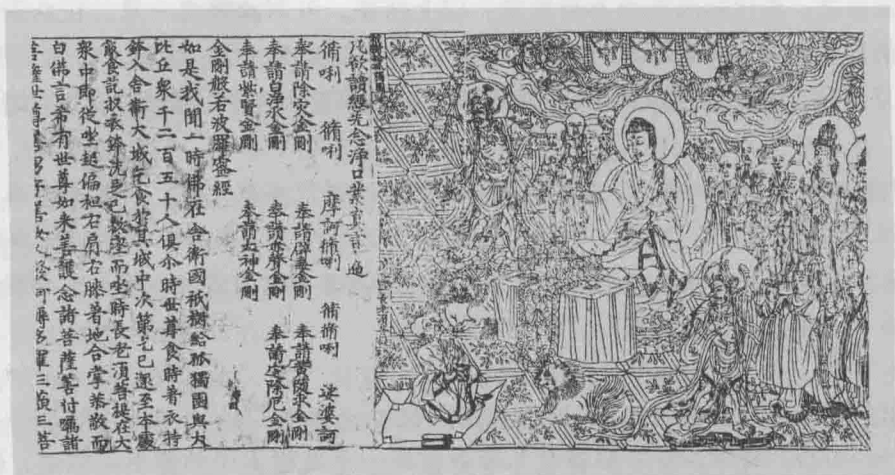 凡欲讀經先念淨口業真言一遍
脩唎 脩唎 摩訶脩唎 脩脩唎 娑婆訶
奉請除災金剛 奉請辟毒金剛 奉請黃隨求金剛
奉請白淨水金剛 奉請赤聲金剛 奉請定除厄金剛
奉請紫賢金剛 奉請大神金剛
金剛般若波羅蜜經
如是我聞一時佛在舍衛國祇樹給孤獨園與大
比丘衆千二百五十人俱尒時世尊食時著衣持
鉢入舍衛大城乞食於其城中次第乞已還至本處
飯食訖収衣鉢洗足已敷座而坐時長老須菩提在大
衆中即從座起偏袒右肩右膝著地合掌恭敬而
白佛言希有世尊如來善護念諸菩薩善付囑諸
菩薩世尊善男子善女人發阿耨多羅三藐三菩